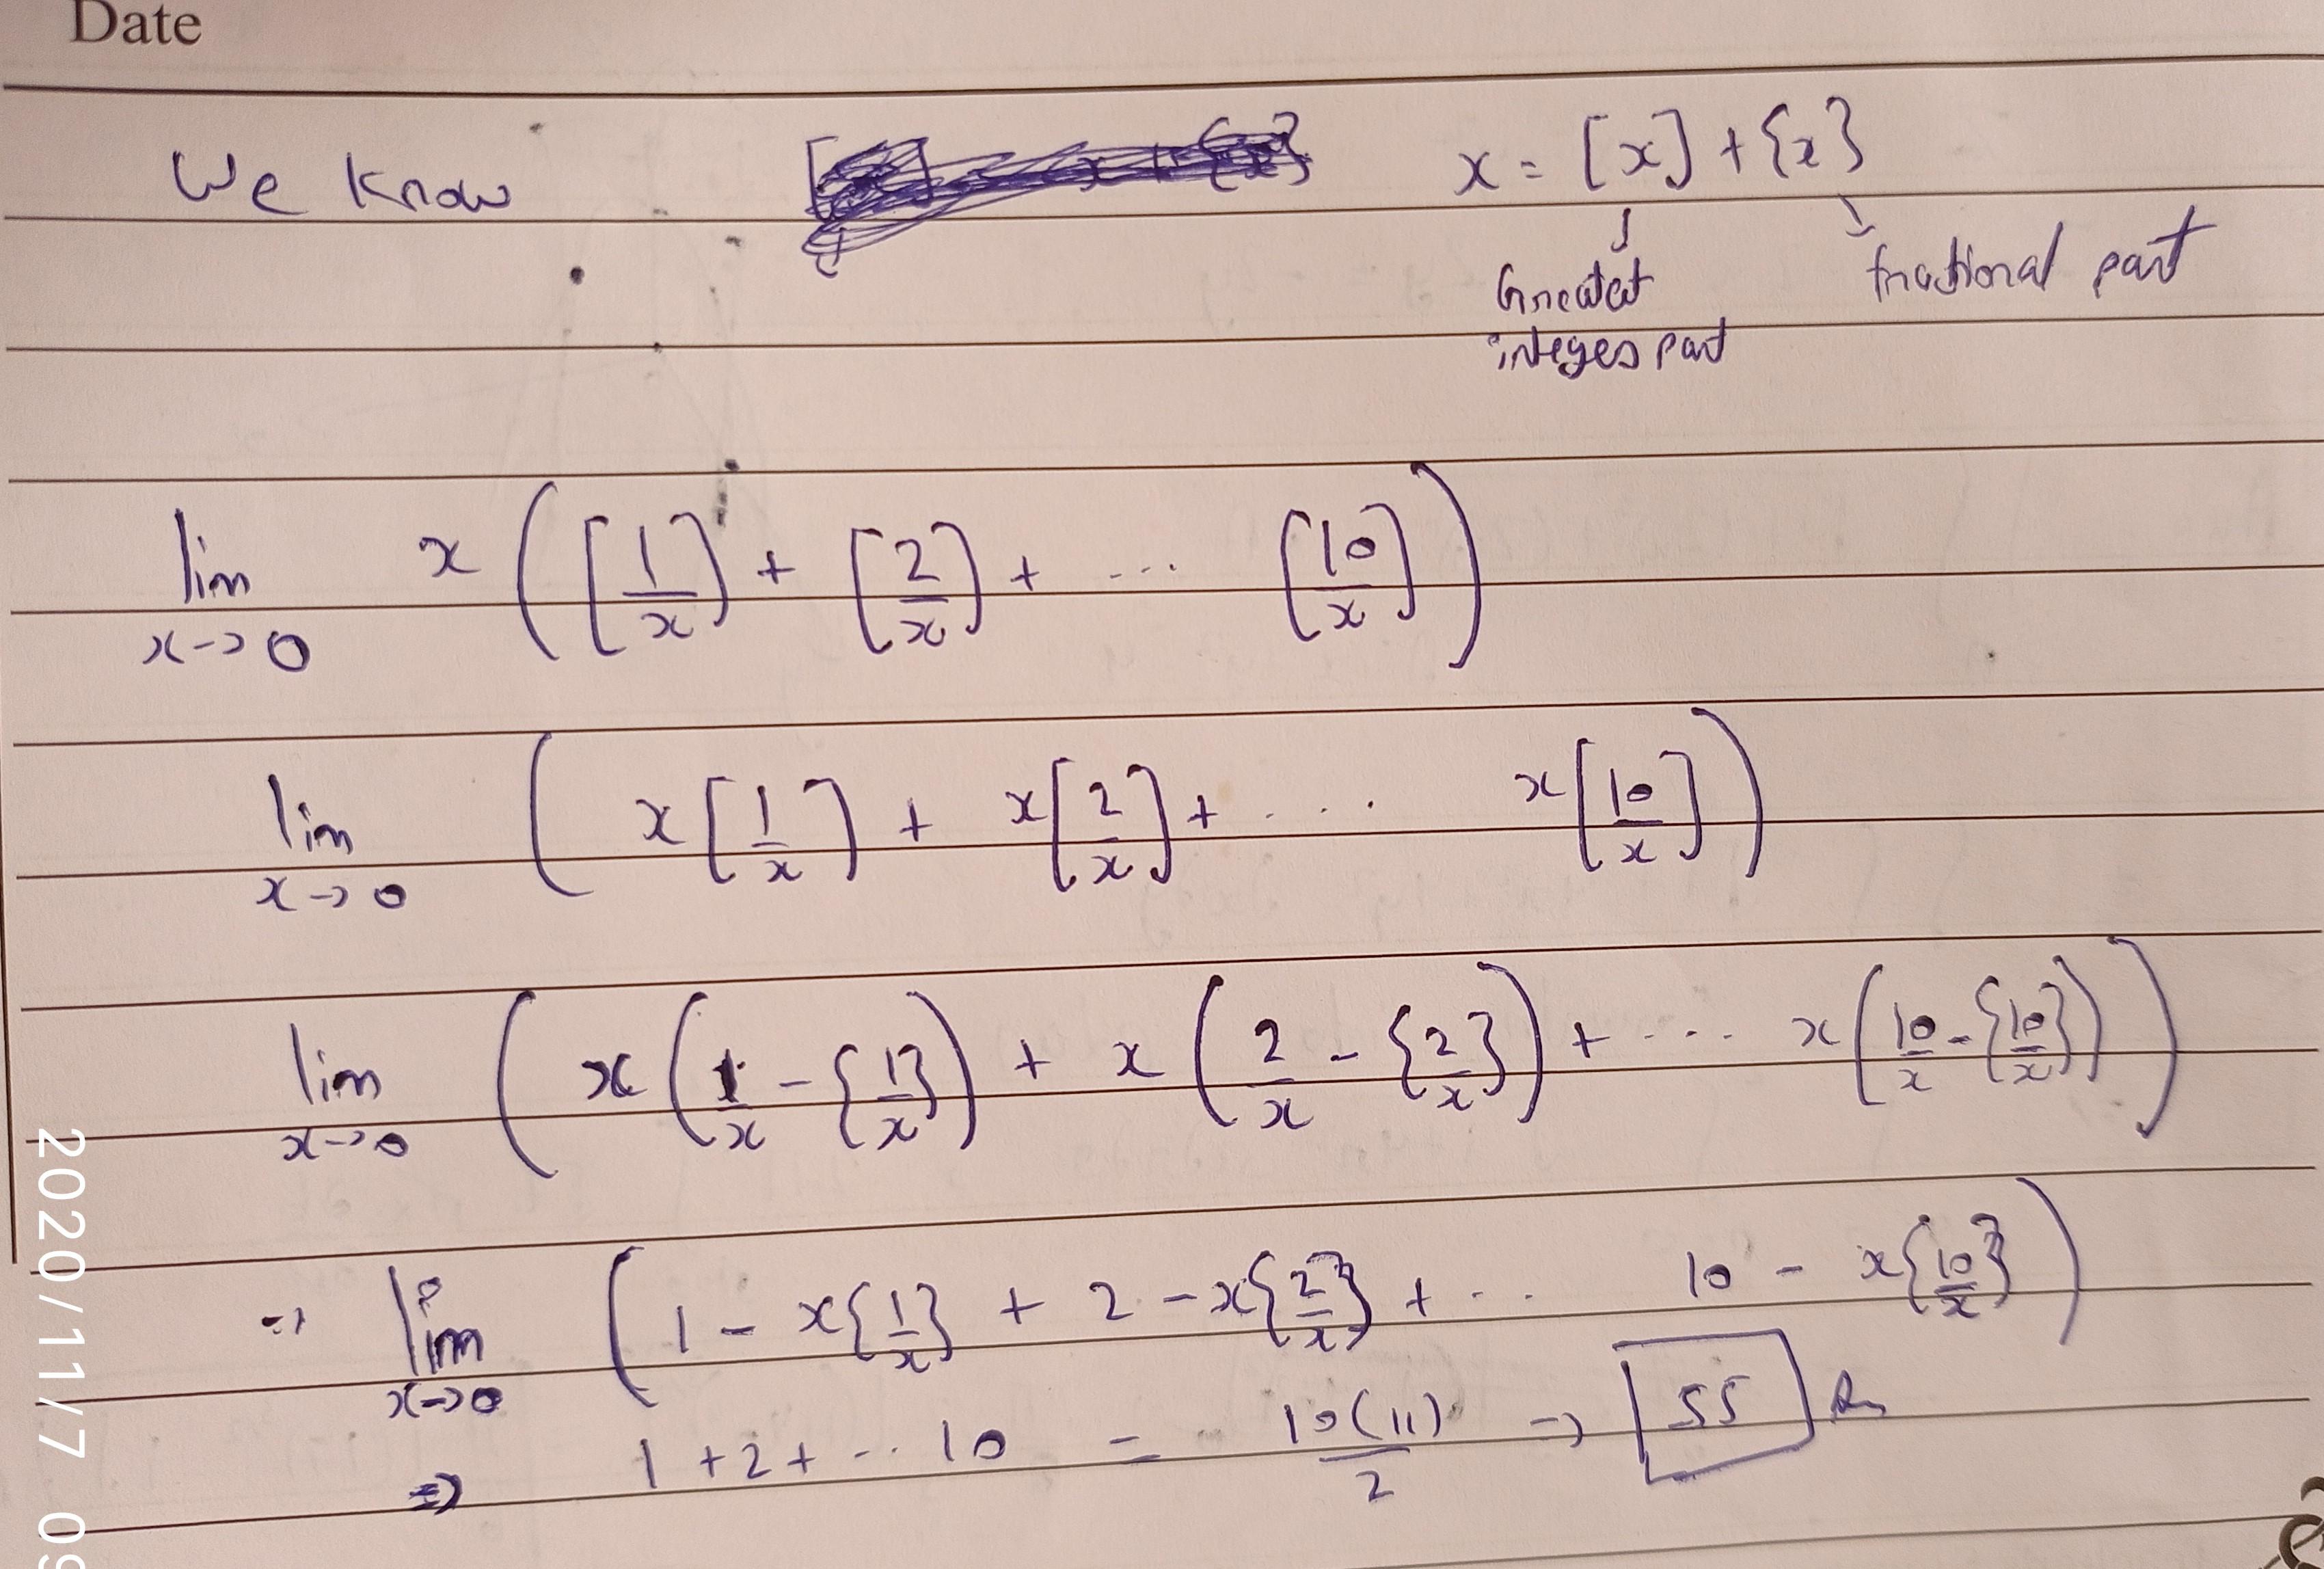 Date
We know x = [x] + {x}
Greatest integer part
fractional part
lim x→0 x ( [1/x] + [2/x] + ... [10/x] )
lim x→0 ( x[1/x] + x[2/x] + .... x[10/x] )
lim x→0 ( x(1/x - {1/x}) + x(2/x - {2/x}) + .... x(10/x - {10/x}) )
⇒ lim x→0 ( 1 - x{1/x} + 2 - x{2/x} + ... 10 - x{10/x} )
⇒ 1 + 2 + ... 10 = 10(11)/2 ⇒ 55
2020/11/7 09